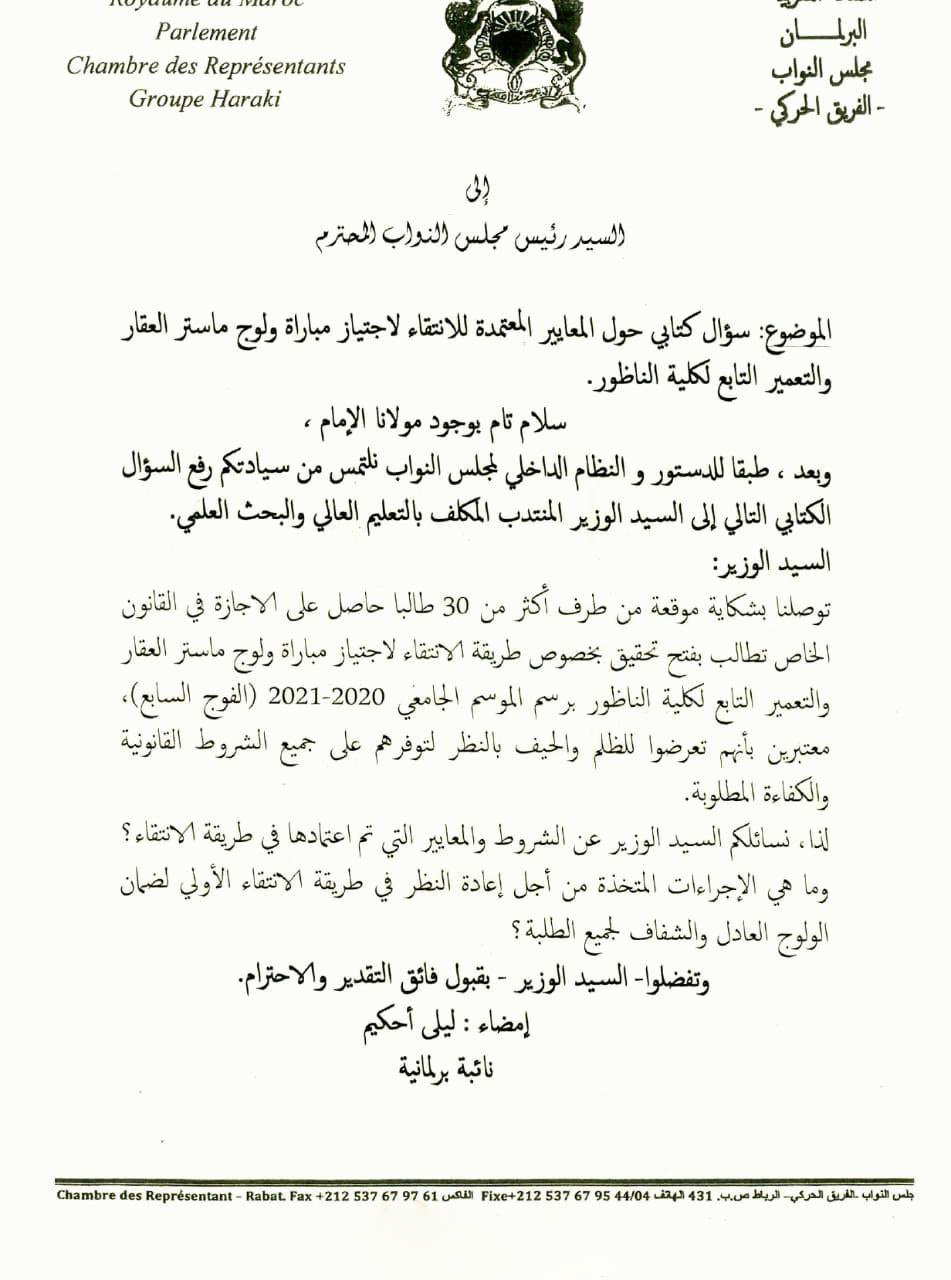 Royaume du Maroc
Parlement
Chambre des Représentants
Groupe Haraki
البرلمـــــان
مجلس النواب
- الفريق الحركي -
إلى
السيد رئيس مجلس النواب المحترم
الموضوع: سؤال كتابي حول المعايير المعتمدة للانتقاء لاجتياز مباراة ولوج ماستر العقار
والتعمير التابع لكلية الناظور.
سلام تام بوجود مولانا الإمام ،
وبعد ، طبقا للدستور و النظام الداخلي لمجلس النواب نلتمس من سيادتكم رفع السؤال
الكتابي التالي إلى السيد الوزير المنتدب المكلف بالتعليم العالي والبحث العلمي.
السيد الوزير:
توصلنا بشكاية موقعة من طرف أكثر من 30 طالبا حاصل على الاجازة في القانون
الخاص تطالب بفتح تحقيق بخصوص طريقة الانتقاء لاجتياز مباراة ولوج ماستر العقار
والتعمير التابع لكلية الناظور برسم الموسم الجامعي 2020-2021 (الفوج السابع)،
معتبرين بأنهم تعرضوا للظلم والحيف بالنظر لتوفرهم على جميع الشروط القانونية
والكفاءة المطلوبة.
لذا، نسائلكم السيد الوزير عن الشروط والمعايير التي تم اعتمادها في طريقة الانتقاء؟
وما هي الإجراءات المتخذة من أجل إعادة النظر في طريقة الانتقاء الأولي لضمان
الولوج العادل والشفاف لجميع الطلبة؟
وتفضلوا- السيد الوزير - بقبول فائق التقدير والاحترام.
إمضاء : ليلى أحكيم
نائبة برلمانية
Chambre des Représentant – Rabat. Fax +212 537 67 97 61 الفاكس Fixe+212 537 67 95 44/04 جلس النواب -الفريق الحركي– الرباط ص.ب. 431 الهاتف